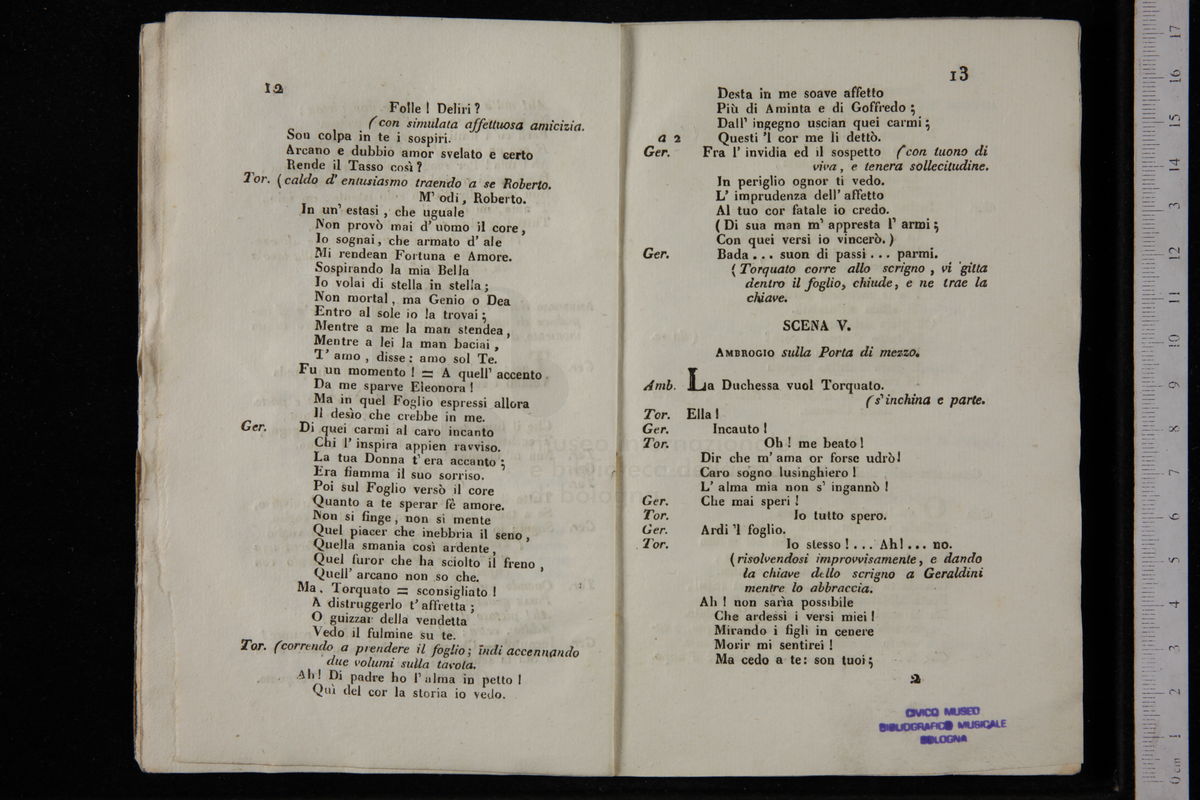 12
Folle ! Deliri ?
(con simulata affettuosa amicizia.
Son colpa in te i sospiri.
Arcano e dubbio amor svelato e certo
Rende il Tasso così ?
Tor. (caldo d' entusiasmo traendo a se Roberto.
M' odi, Roberto.
In un' estasi, che uguale
Non provò mai d' uomo il core,
Io sognai, che armato d' ale
Mi rendean Fortuna e Amore.
Sospirando la mia Bella
Io volai di stella in stella;
Non mortal, ma Genio o Dea
Entro al sole io la trovai;
Mentre a me la man stendea,
Mentre a lei la man baciai,
T' amo, disse: amo sol Te.
Fu un momento ! = A quell' accento
Da me sparve Eleonora !
Ma in quel Foglio espressi allora
Il desìo che crebbe in me.
Ger. Di quei carmi al caro incanto
Chi l' inspira appien ravviso.
La tua Donna t' era accanto;
Era fiamma il suo sorriso.
Poi sul Foglio versò il core
Quanto a te sperar fè amore.
Non si finge, non si mente
Quel piacer che inebbria il seno,
Quella smania così ardente,
Quel furor che ha sciolto il freno,
Quell' arcano non so che.
Ma, Torquato = sconsigliato !
A distruggerlo t' affretta;
O guizzar della vendetta
Vedo il fulmine su te.
Tor. (correndo a prendere il foglio; indi accennando
due volumi sulla tavola.
Ah! Di padre ho l' alma in petto !
Quì del cor la storia io vedo.
13
Desta in me soave affetto
Più di Aminta e di Goffredo;
Dall' ingegno uscian quei carmi;
a 2 Questi 'l cor me li dettò.
Ger. Fra l' invidia ed il sospetto (con tuono di
viva, e tenera sollecitudine.
In periglio ognor ti vedo.
L' imprudenza dell' affetto
Al tuo cor fatale io credo.
(Di sua man m' appresta l' armi;
Con quei versi io vincerò.)
Ger. Bada... suon di passi... parmi.
(Torquato corre allo scrigno, vi gitta
dentro il foglio, chiude, e ne trae la
chiave.
SCENA V.
AMBROGIO sulla Porta di mezzo.
Amb. La Duchessa vuol Torquato.
(s' inchina e parte.
Tor. Ella !
Ger. Incauto !
Tor. Oh ! me beato !
Dir che m' ama or forse udrò !
Caro sogno lusinghiero !
L' alma mia non s' ingannò !
Ger. Che mai speri !
Tor. Io tutto spero.
Ger. Ardi 'l foglio.
Tor. Io stesso !... Ah!... no.
(risolvendosi improvvisamente, e dando
la chiave dello scrigno a Geraldini
mentre lo abbraccia.
Ah ! non sarìa possibile
Che ardessi i versi miei !
Mirando i figli in cenere
Morir mi sentirei !
Ma cedo a te: son tuoi;
2
CIVICO MUSEO
BIBLIOGRAFICO MUSICALE
BOLOGNA